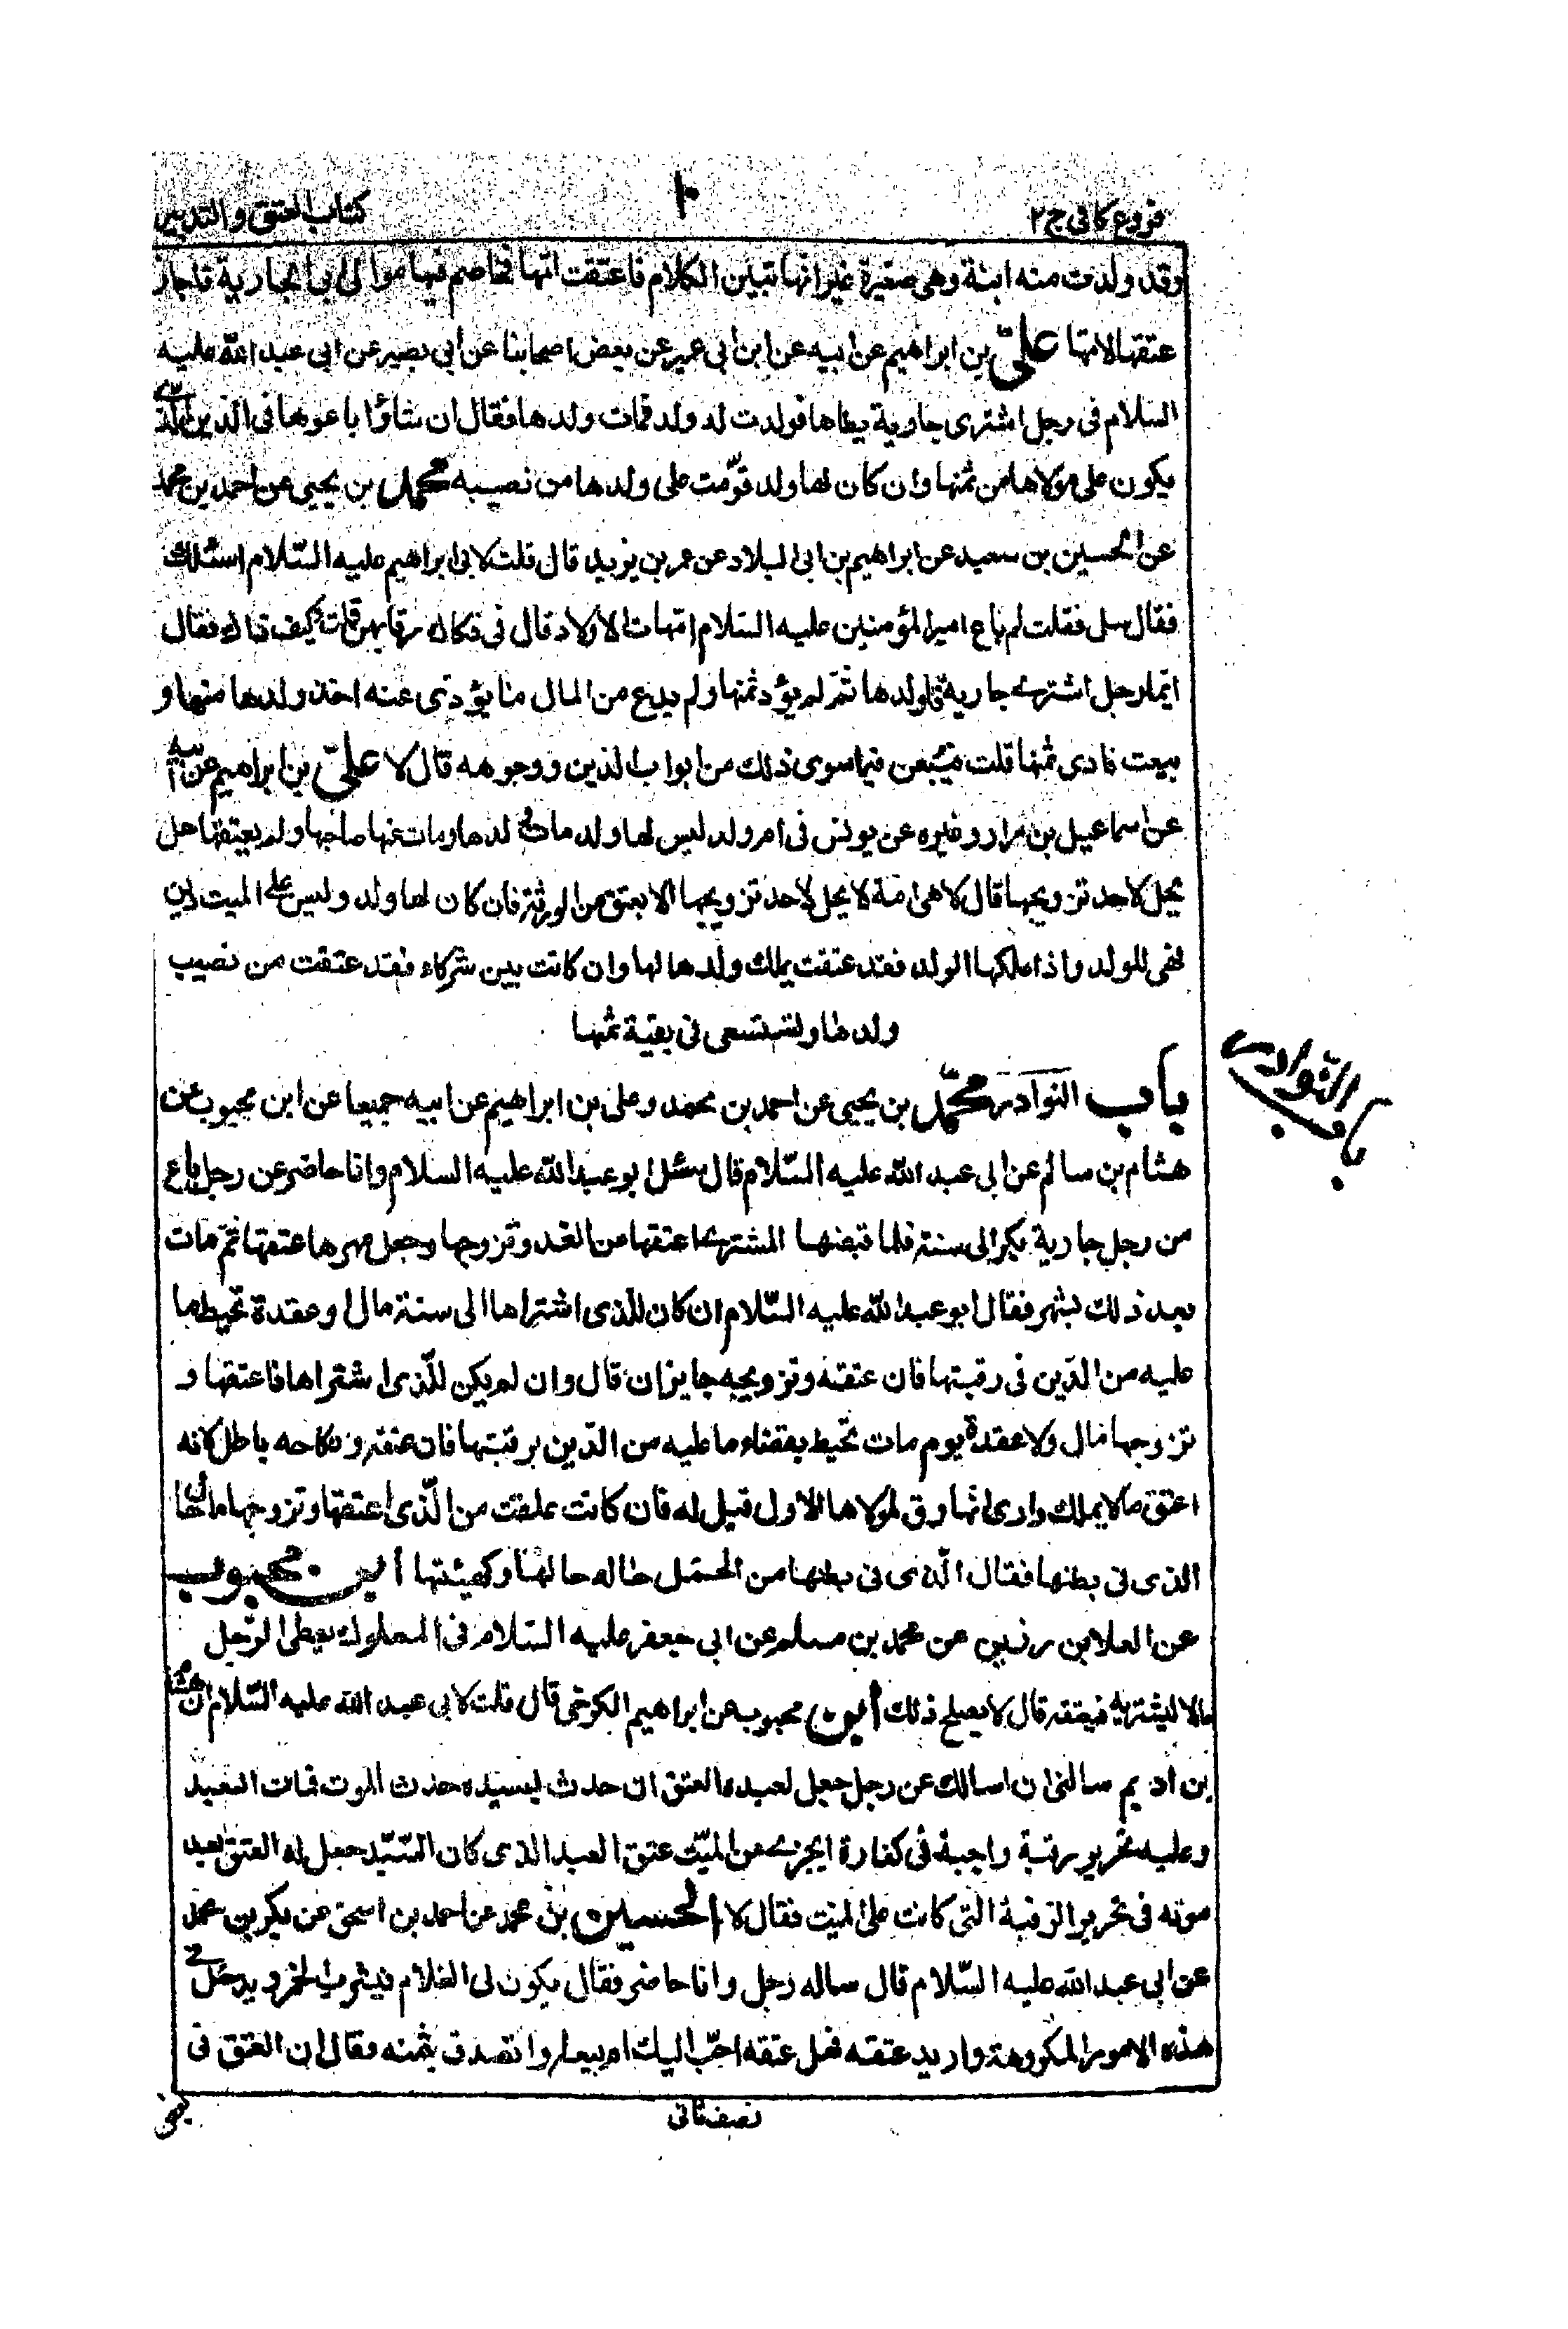 فروع كافى ج٢
١٠
كتاب العتق والتدبير
وقد ولدت منه ابنة وهى صغيرة غير انها تبين الكلام فاعتقت امها فخاصم فيها موالى ابى الجارية فاجاز
عتقها لامها علىّ بن ابراهيم عن ابيه عن ابن ابى عمير عن بعض اصحابنا عن أبى بصير عن ابى عبد الله عليه
السلام فى رجل اشترى جارية يطاها فولدت له ولد فمات ولدها فقال ان شاؤا باعوها فى الدين الذى
يكون على مولاها من ثمنها وان كان لها ولد قوّمت على ولدها من نصيبه محمد بن يحيى عن احمد بن محمد
عن الحسين بن سعيد عن ابراهيم بن ابى البلاد عن عمر بن يزيد قال قلت لابى ابراهيم عليه السّلام اسئلك
فقال سل فقلت لم باع امير المؤمنين عليه السلام امّهات الأولاد قال فى فكاك رقابهن قلت وكيف ذاك فقال
ايما رجل اشترى جارية فاولدها ثمّ لم يؤد ثمنها ولم يدع من المال ما يؤدى عنه اخذ ولدها منها و
بيعت فادى ثمنها قلت فيبعن فيما سوى ذلك من ابواب الدين ووجوهه قال لا علىّ بن ابراهيم عن ابيه
عن اسماعيل بن مرار وغيره عن يونس فى ام ولد ليس لها ولد مات ولدها ومات عنها صاحبها ولم يعتقها هل
يحل لاحد تزويجها قال لا هى امة لا يحل لاحد تزويجها الا بعتق من الورثة فان كان لها ولد وليس على الميت دين
فهى للولد واذا ملكها الولد فقد عتقت بملك ولدها لها وان كانت بين شركاء فقد عتقت من نصيب
ولدها وتستسعى فى بقية ثمنها
باب النوادر محمّد بن يحيى عن احمد بن محمد وعلى بن ابراهيم عن ابيه جميعا عن ابن محبوب عن
باب النّوادر
هشام بن سالم عن ابى عبد الله عليه السّلام قال سئل ابو عبد الله عليه السلام وانا حاضر عن رجل باع
من رجل جارية بكرا الى سنة فلما قبضها المشترى اعتقها من الغد وتزوجها وجعل مهرها عتقها ثمّ مات
بعد ذلك بشهر فقال ابو عبد الله عليه السّلام ان كان للذى اشتراها الى سنة مال او عقدة تحيط بما
عليه من الدّين فى رقبتها فان عتقه وتزويجه جايزان قال وان لم يكن للّذى اشتراها فاعتقها و
تزوجها مال ولا عقدة يوم مات تحيط بقضاء ما عليه من الدّين برقبتها فان عتقه ونكاحه باطل لانه
اعتق ما لا يملك وارى انها رق لمولاها الاول قيل له فان كانت علقت من الّذى اعتقها وتزوجها ما حال
الذى فى بطنها فقال الّذى فى بطنها من الحمل حاله حالها وكهيئتها ابن محبوب
عن العلا بن رزين عن محمد بن مسلم عن ابى جعفر عليه السّلام فى المملوك يعطى الرّجل
مالا ليشتريه فيعتقه قال لا يصلح ذلك ابن محبوب عن ابراهيم الكرخى قال قلت لابى عبد الله عليه السّلام ان هشام
بن اديم سالنى ان اسالك عن رجل جعل لعبده العتق ان حدث لسيده حدث الموت فمات السيد
وعليه تحرير رقبة واجبة فى كفارة ايجزى عن الميّت عتق العبد الذى كان السّيّد جعل له العتق بعد
موته فى تحرير الرّقبة التى كانت على الميّت فقال لا الحسين بن محمد عن احمد بن اسحق عن بكر بن محمد
عن ابى عبد الله عليه السّلام قال ساله رجل وانا حاضر فقال يكون لى الغلام فيشرب الخمر ويدخل فى
هذه الامور المكروهة واريد عتقه فهل عتقه احبّ اليك ام بيعه واتصدق بثمنه فقال ان العتق فى
نصف ثانى
بعض